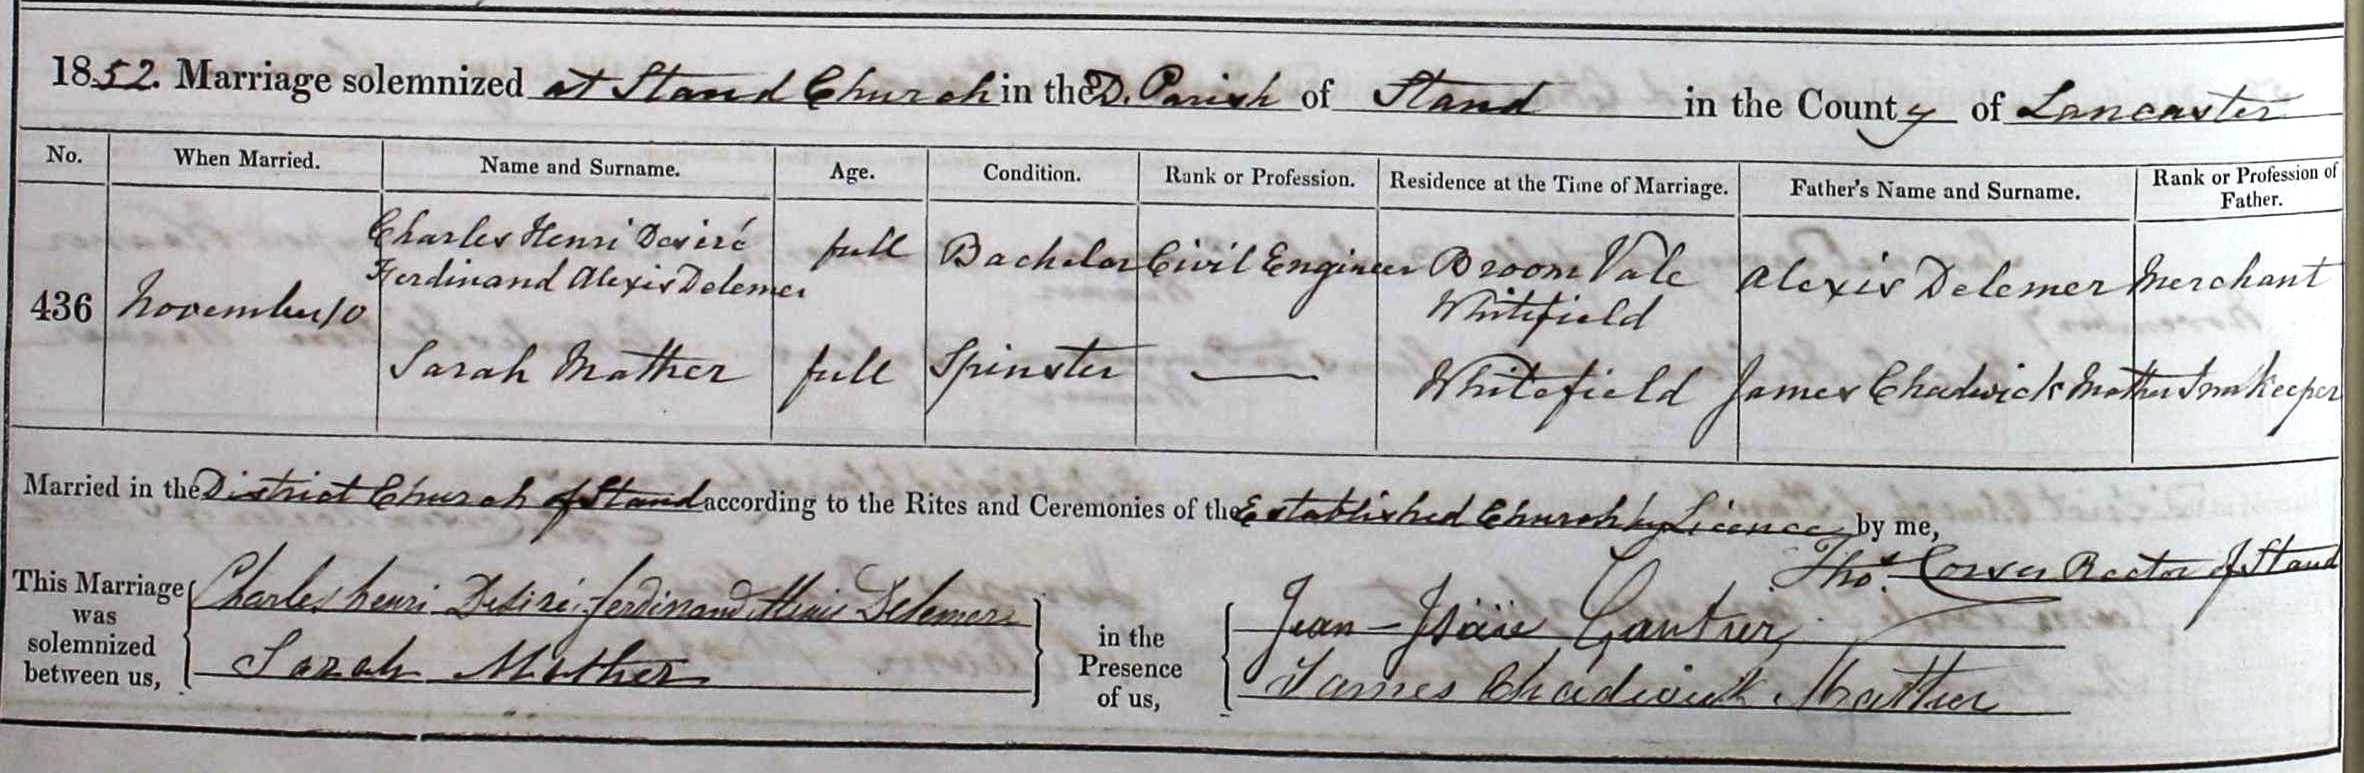 1852. Marriage solemnized at Stand Church in the D. Parish of Stand in the County of Lancaster
No. When Married. Name and Surname. Age. Condition. Rank or Profession. Residence at the Time of Marriage. Father's Name and Surname. Rank or Profession of Father.
436 November 10 Charles Henri Desiré Ferdinand Alexis Delemer full Bachelor Civil Engineer Broom Vale Whitefield Alexis Delemer Merchant
Sarah Mather full Spinster — Whitefield James Chadwick Mather Innkeeper
Married in the District Church of Stand according to the Rites and Ceremonies of the Established Church by Licence by me,
Thos. Corser Rector of Stand
This Marriage was solemnized between us, Charles henri Desiré ferdinand Alexis Delemer
Sarah Mather
in the Presence of us, Jean-Isaïe Gautier
James Chadwick Mather